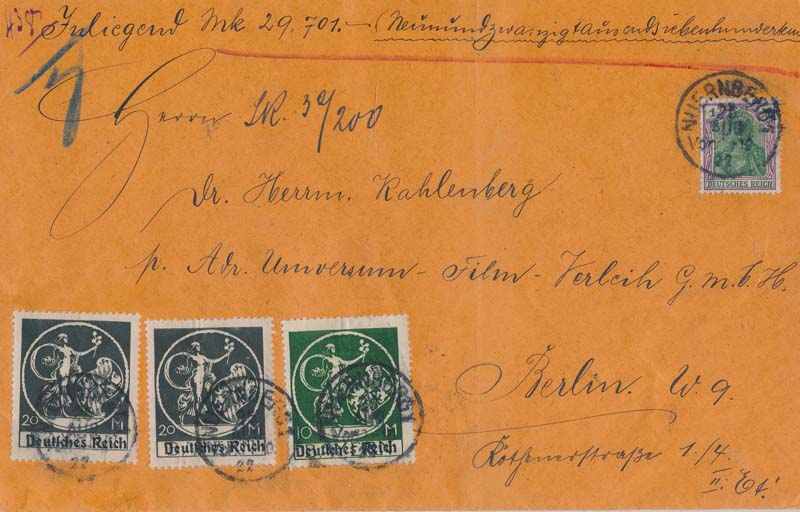 Inliegend Mk 29,701.— (Neunundzwanzigtausendsiebenhunderteins
Herrn
Dr. Herrm. Kahlenberg
p. Adr. Universum - Film - Verleih G.m.b.H.
Berlin. W 9.
Köthenerstraße 1/4
II. Et.
NUERNBERG
22
DEUTSCHES REICH
20 M
Deutsches Reich
22
20 M
Deutsches Reich
22
10 M
Deutsches Reich